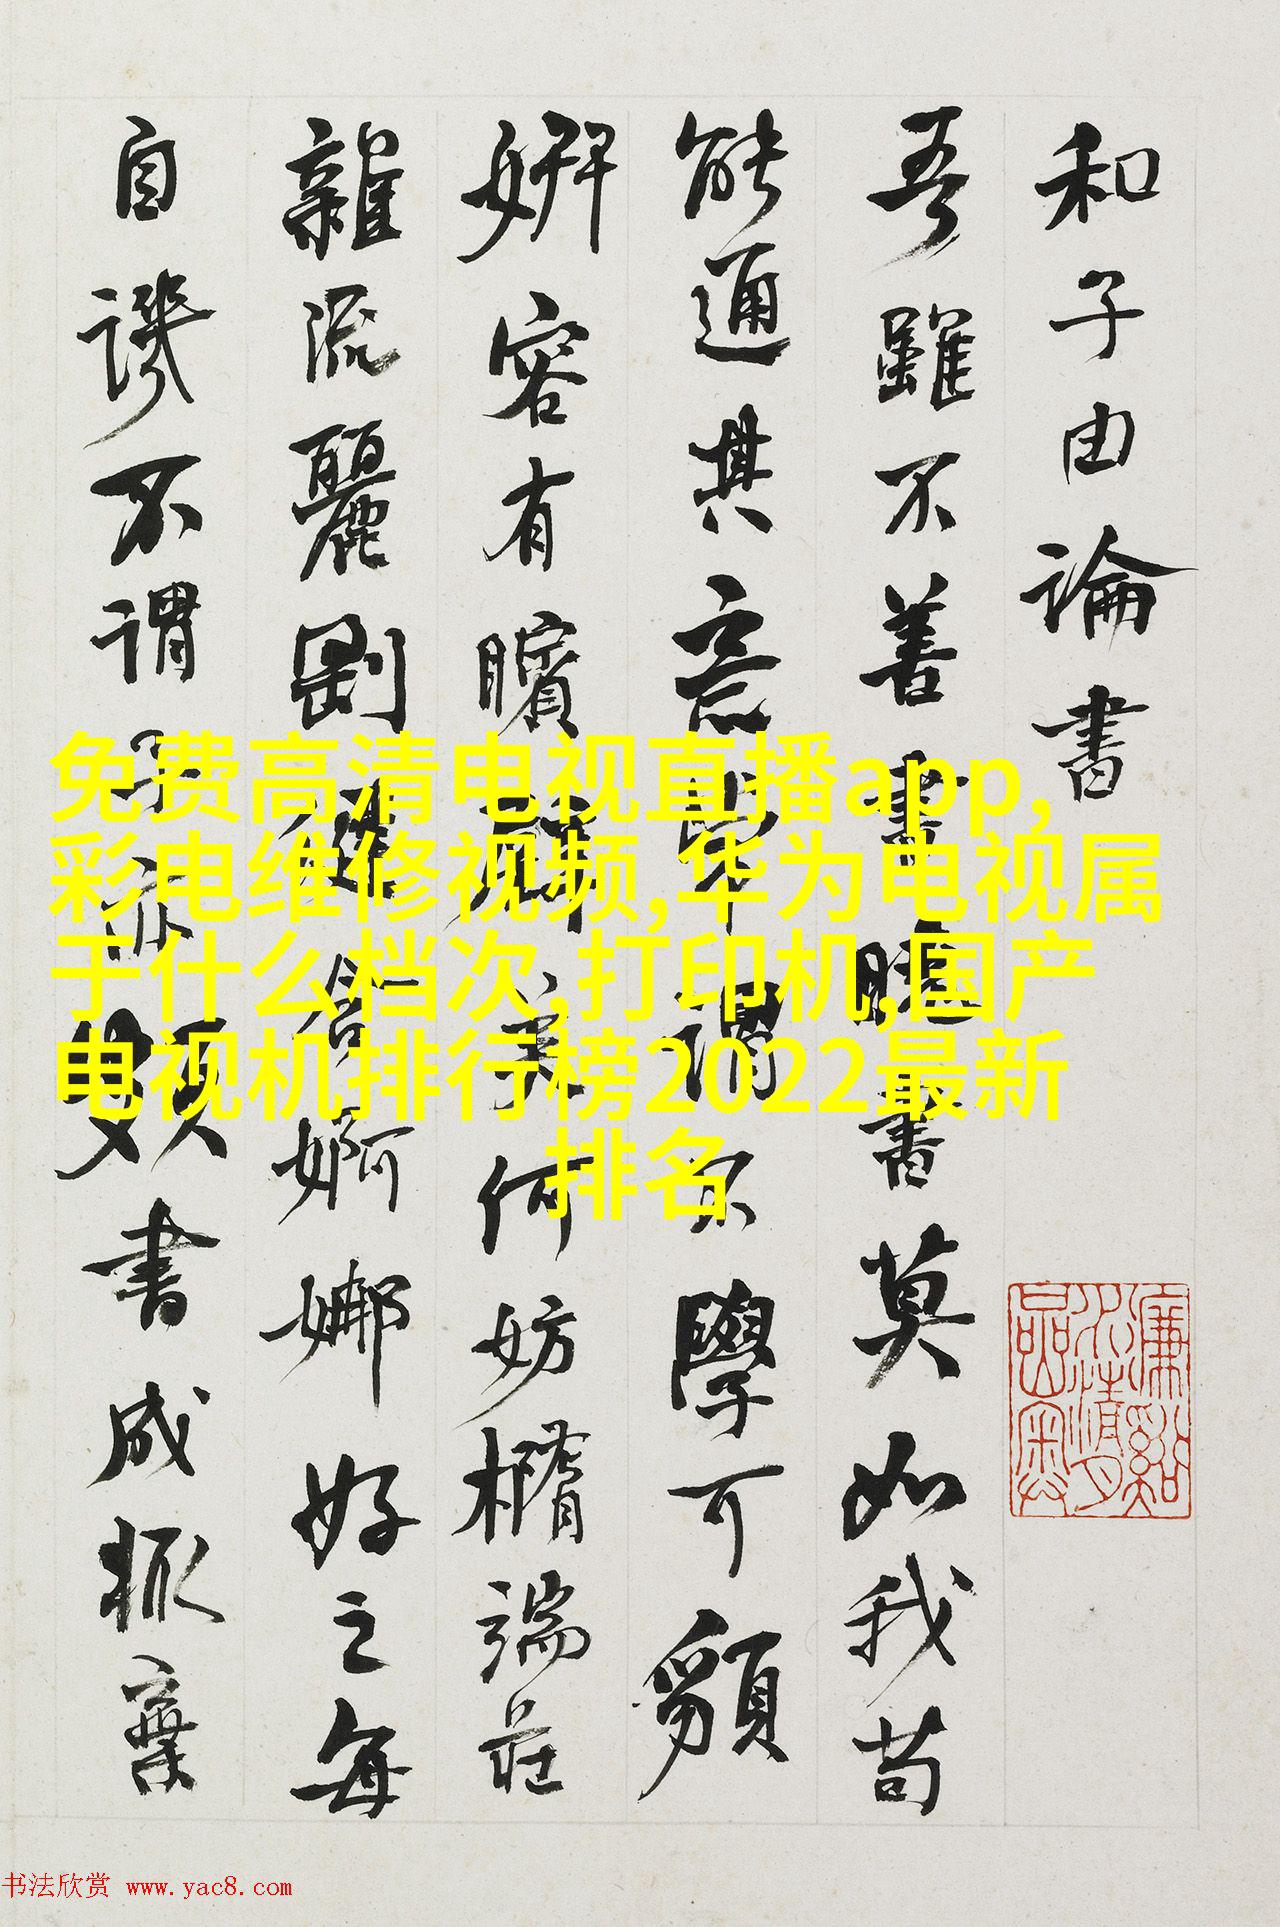 和子由論書
吾雖不善書曉書莫如我苟
能通其意常謂不學可䫉
妍容有矉璧美何妨橢端莊
雜流麗剛健含婀娜好之每
自譏不謂子亦頗書成輒棄
免费高清电视直播app,
彩电维修视频,华为电视属
于什么档次,打印机,国产
电视机排行榜2022最新
排名
书法欣赏 www.yac8.com